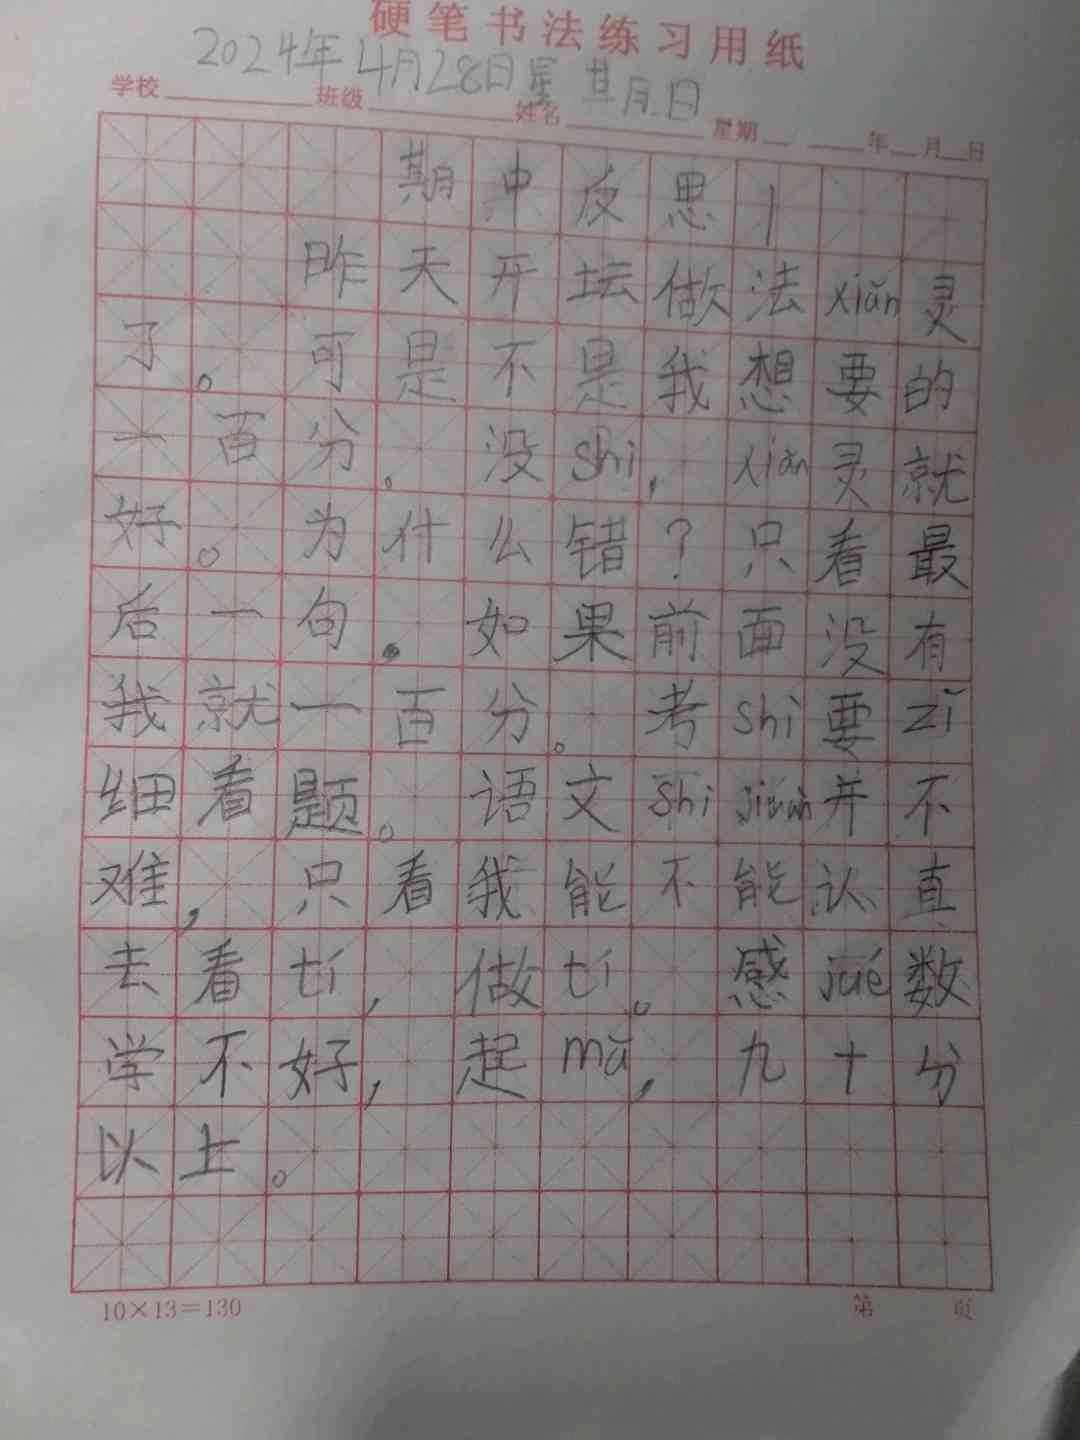 硬笔书法练习用纸
2024年4月28日星其月日
学校 班级 姓名 星期 年 月 日
期中反思1
昨天开坛做法xiǎn灵
了。可是不是我想要的
一百分。没shi,xiǎn灵就
好。为什么错?只看最
后一句。如果前面没有
我就一百分。考shì要zǐ
细看题。语文shì juàn并不
难,只看我能不能认真
去看tí,做tí。感jué数
学不好,起mǎ,九十分
以上。
10×13=130
第 页